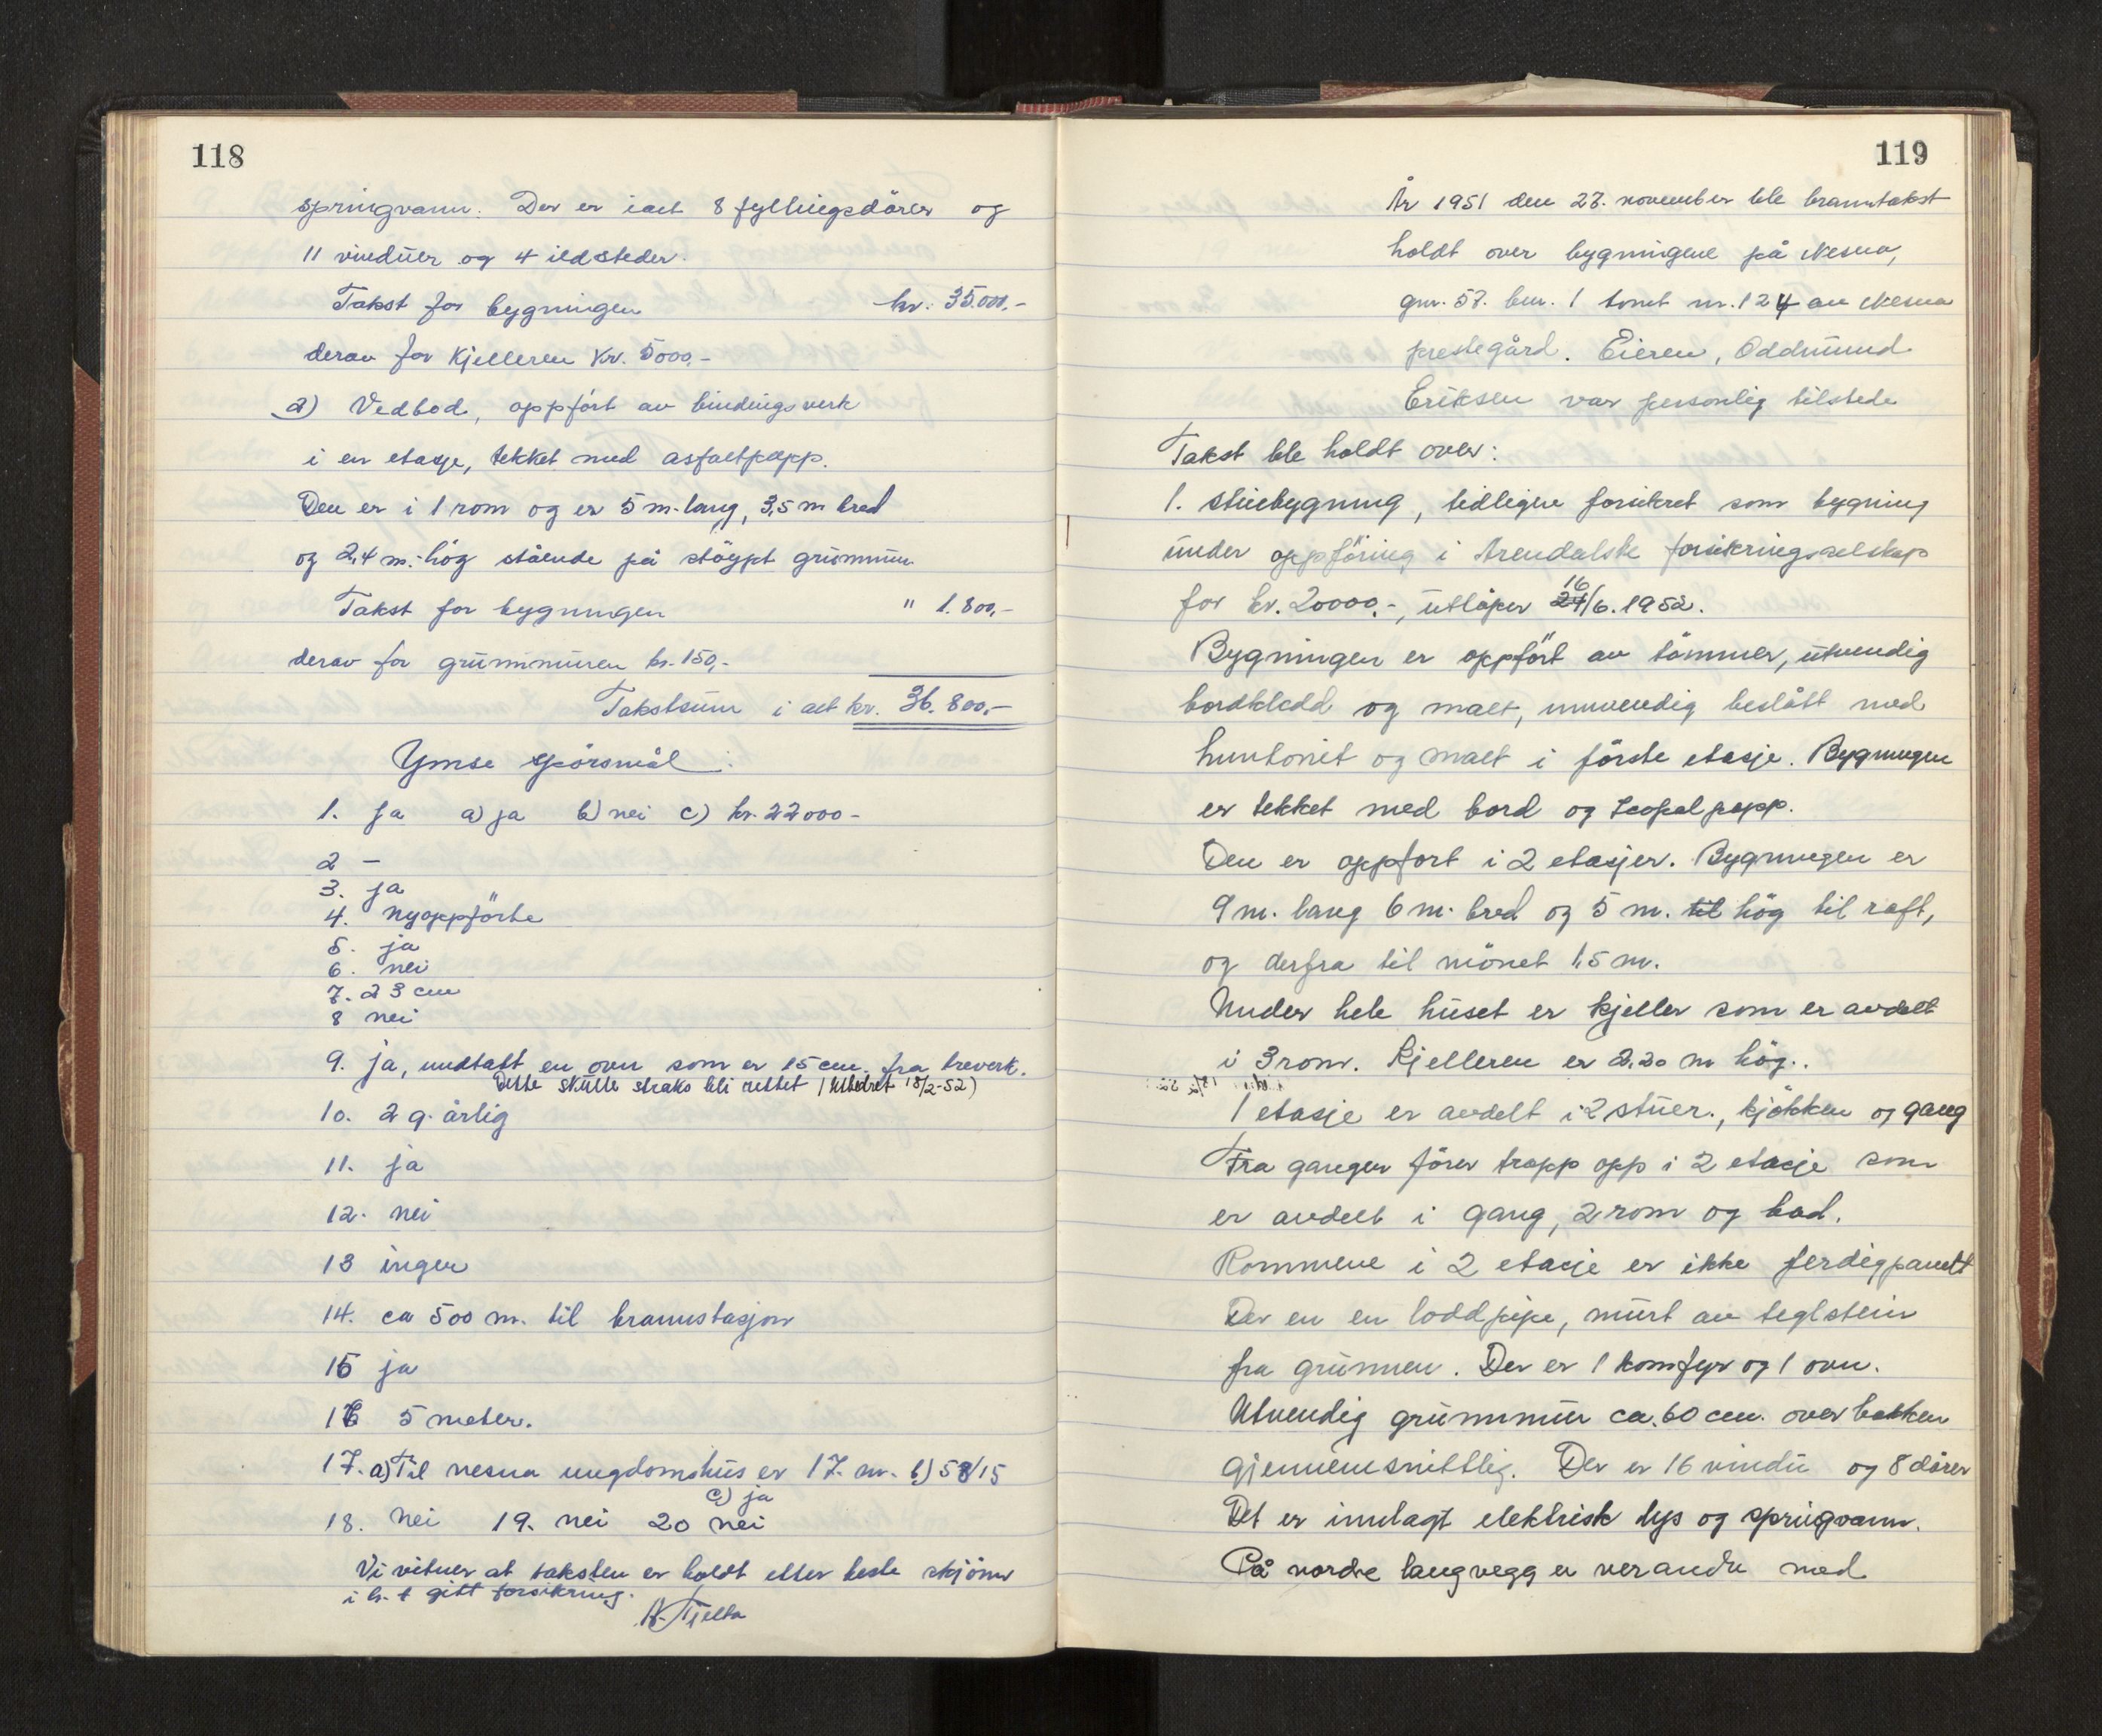 118
springvann. Der er ialt 8 fyllingsdörer og
11 vinduer og 4 ildsteder.
Takst for bygningen kr. 35.000,-
derav for kjelleren kr. 5000,-
2) Vedbod, oppført av bindingsverk
i en etasje, tekket med asfaltpapp.
Den er i 1 rom og er 5 m. lang, 3,5 m bred
og 2,4 m. hög stående på stöypt grunnmur
Takst for bygningen " 1.800,-
derav for grunnmuren kr. 150,-
Takstsum i alt kr. 36.800,-
Ymse spörsmål:
1. Ja a) ja b) nei c) kr. 22000-
2 —
3. ja
4. nyoppförte
5. ja
6. nei
7. 23 cm
8 nei
9. ja, undtatt en ovn som er 15 cm. fra treverk.
Dette skulle straks bli rettet (Utbedret 18/2-52)
10. 2 g. årlig
11. ja
12. nei
13 ingen
14. ca 500 m. til brannstasjon
15 ja
16 5 meter.
17. a) Til nesna ungdomshus er 17. m. b) 58/15
c) ja
18. nei 19. nei 20 nei
Vi vitner at taksten er holdt etter beste skjönn
i h. t gitt forsikring.
Tjelta
119
År 1951 den 23. november ble branntakst
holdt over bygningene på Nesna,
gnr. 57. bnr. 1 tomt nr. 124 av Nesna
prestegård. Eieren, Oddmund
Eriksen var personlig tilstede
Takst ble holdt over:
1. Stuebygning, tidligere forsikret som bygning
under oppföring i Arendalske forsikringsselskap
for kr. 20000.-, utlöper 16/6. 1952.
Bygningen er oppfört av tömmer, utvendig
bordkledd og malt, innvendig beslått med
huntonit og malt i förste etasje. Bygningen
er tekket med bord og Icopalpapp.
Den er oppfort i 2 etasjer. Bygningen er
9 m. lang 6 m. bred og 5 m. til hög til raft,
og derfra til mönet 1,5 m.
Under hele huset er kjeller som er avdelt
i 3 rom. Kjelleren er 2.20 m hög.
1 etasje er avdelt i 2 stuer., kjökken og gang
Fra gangen förer trapp opp i 2 etasje som
er avdelt i gang, 2 rom og bad.
Rommene i 2 etasje er ikke ferdigpanelt
Der en en loddpipe, murt av teglstein
fra grunnen. Der er 1 komfyr og 1 ovn.
Utvendig grunnmur ca. 60 cm. over bakken
gjennemsnittlig. Der er 16 vindu og 8 dörer
Det er innlagt elektrisk lys og springvann.
På nordre langvegg er veranda med